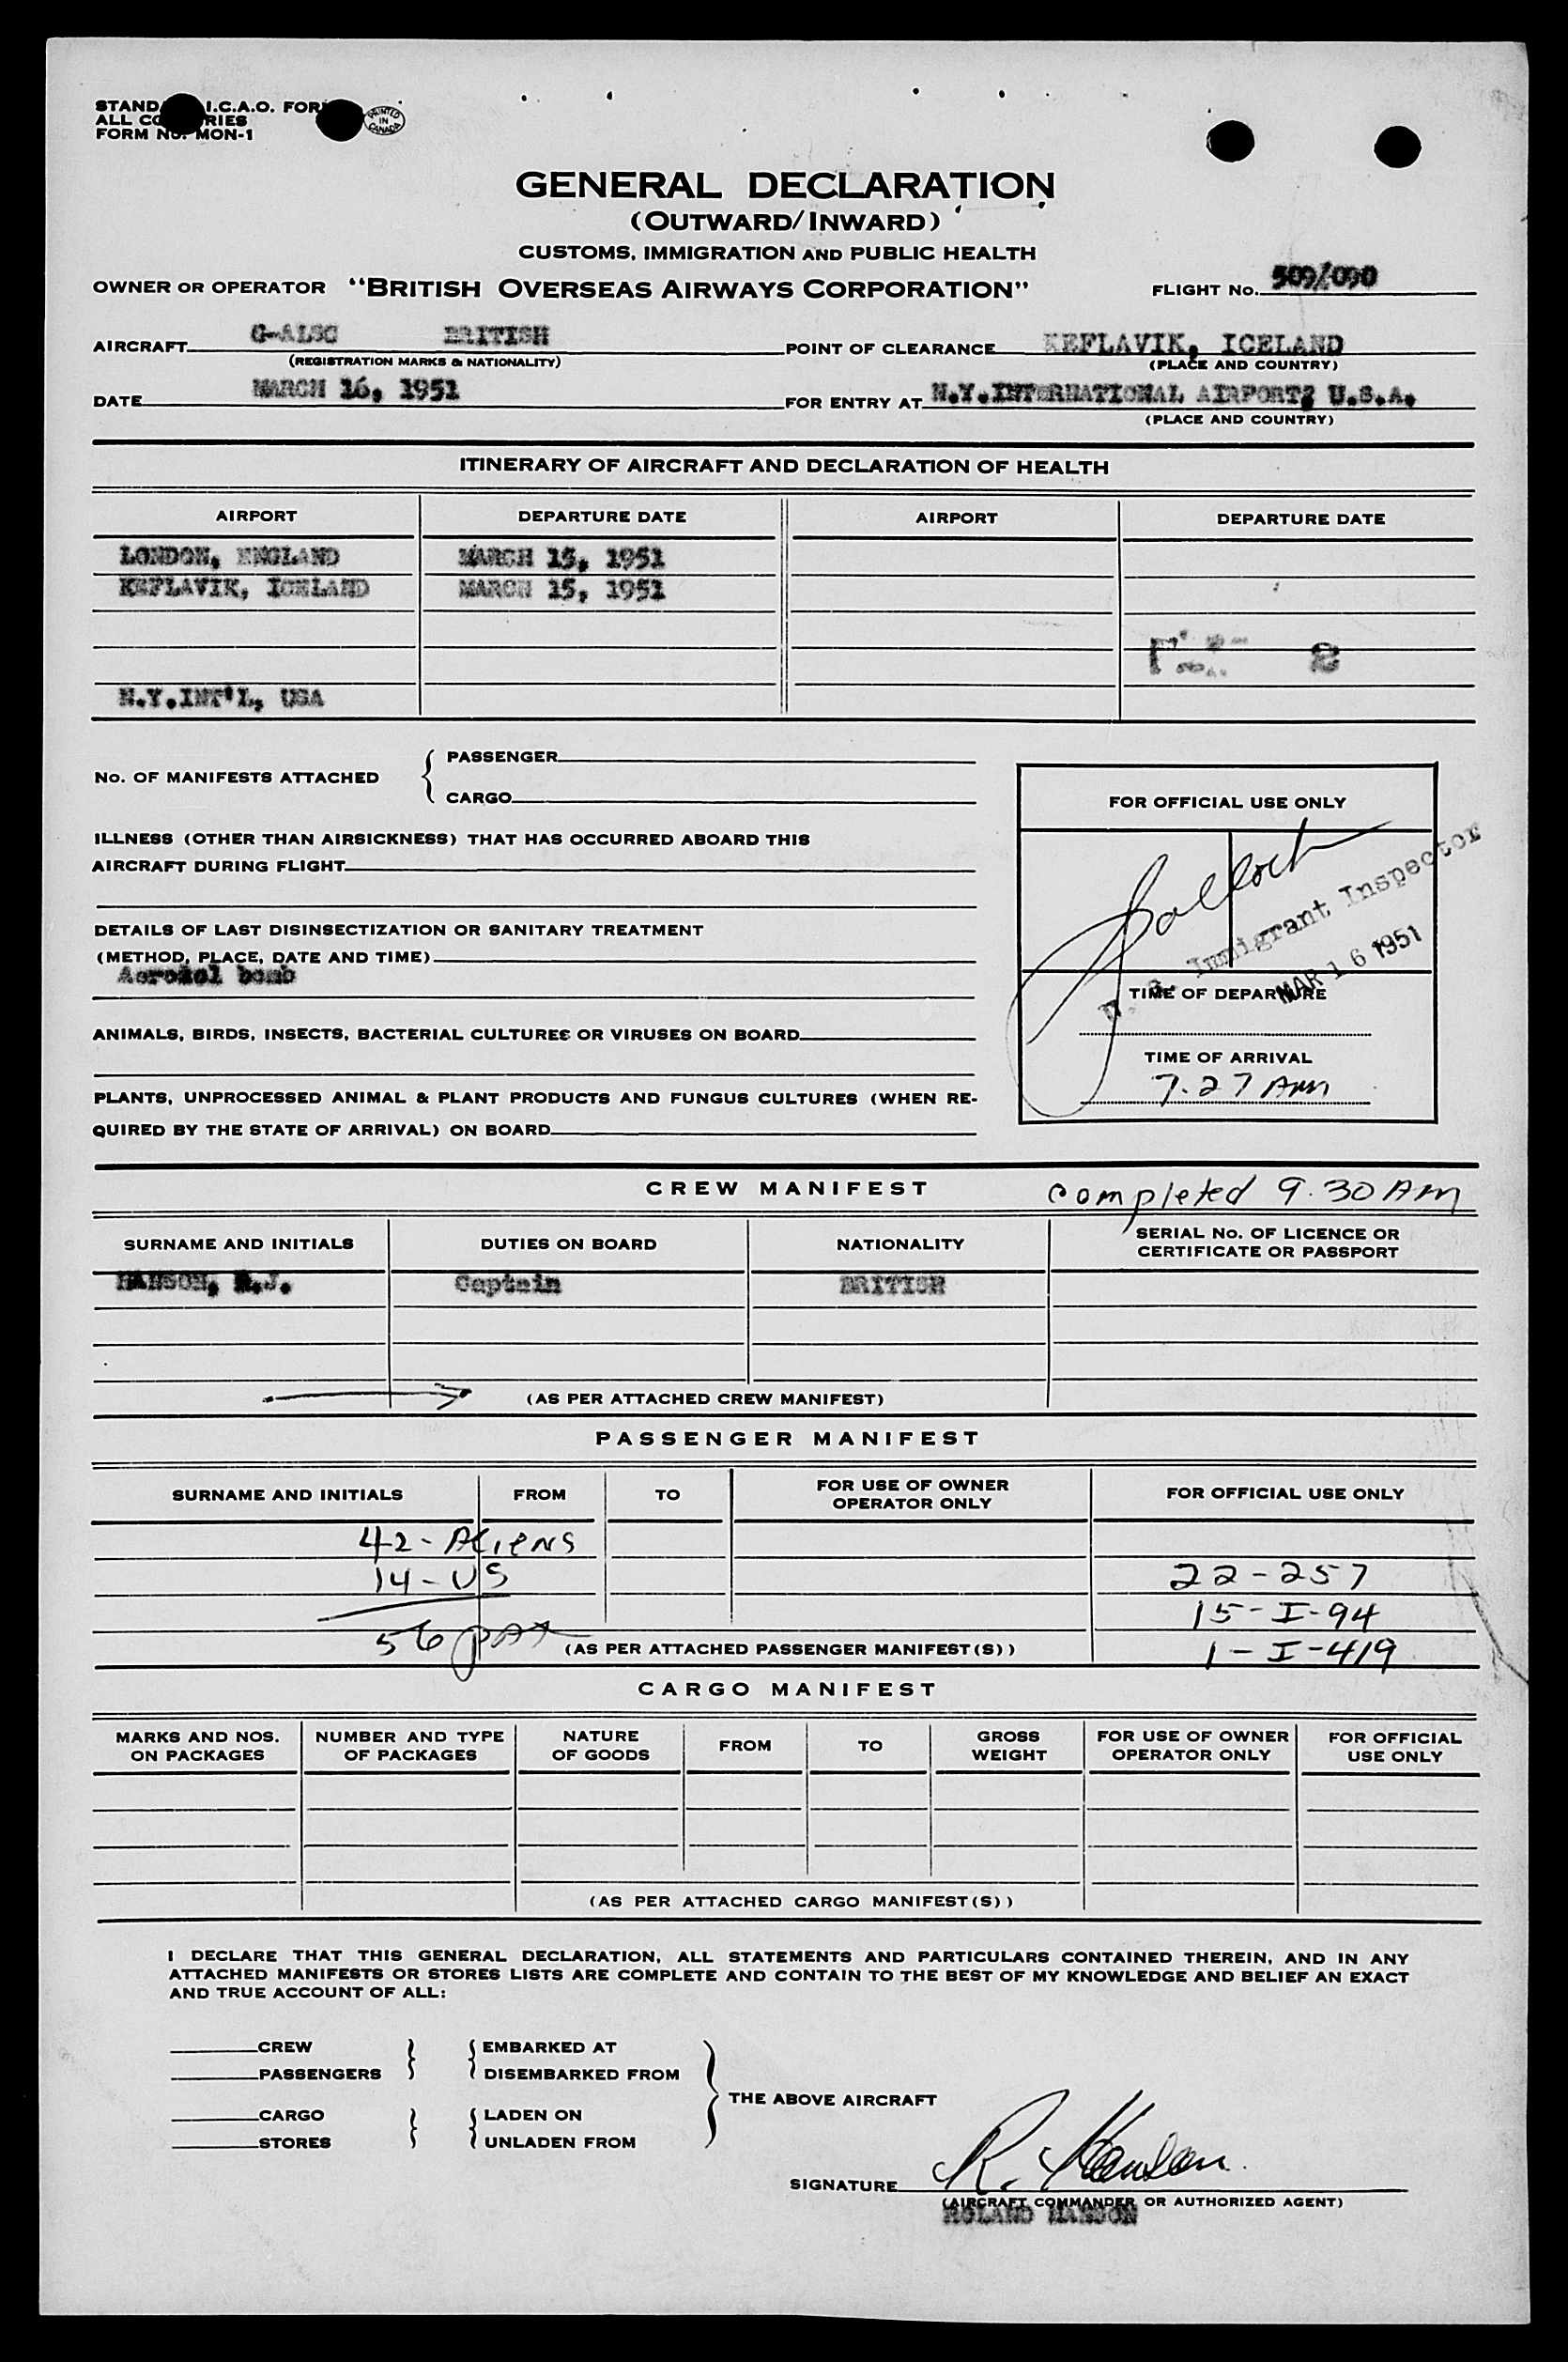 STAND I.C.A.O. FOR
ALL CO RIES
FORM No. MON-1
PRINTED IN CANADA
GENERAL DECLARATION
(OUTWARD/INWARD)
CUSTOMS, IMMIGRATION AND PUBLIC HEALTH
OWNER OR OPERATOR "BRITISH OVERSEAS AIRWAYS CORPORATION" FLIGHT No. 509/090
AIRCRAFT G-ALSC BRITISH POINT OF CLEARANCE KEFLAVIK, ICELAND
(REGISTRATION MARKS & NATIONALITY) (PLACE AND COUNTRY)
DATE MARCH 16, 1951 FOR ENTRY AT N.Y.INTERNATIONAL AIRPORT, U.S.A.
(PLACE AND COUNTRY)
ITINERARY OF AIRCRAFT AND DECLARATION OF HEALTH
AIRPORT DEPARTURE DATE AIRPORT DEPARTURE DATE
LONDON, ENGLAND MARCH 15, 1951
KEFLAVIK, ICELAND MARCH 15, 1951
8
N.Y.INT'L, USA
No. OF MANIFESTS ATTACHED { PASSENGER
CARGO
FOR OFFICIAL USE ONLY
ILLNESS (OTHER THAN AIRSICKNESS) THAT HAS OCCURRED ABOARD THIS
AIRCRAFT DURING FLIGHT
DETAILS OF LAST DISINSECTIZATION OR SANITARY TREATMENT
(METHOD, PLACE, DATE AND TIME)
Aerosol bomb
U. S. Immigrant Inspector
MAR 16 1951
TIME OF DEPARTURE
ANIMALS, BIRDS, INSECTS, BACTERIAL CULTURES OR VIRUSES ON BOARD
TIME OF ARRIVAL
7.27 AM
PLANTS, UNPROCESSED ANIMAL & PLANT PRODUCTS AND FUNGUS CULTURES (WHEN RE-
QUIRED BY THE STATE OF ARRIVAL) ON BOARD
CREW MANIFEST completed 9.30 AM
SURNAME AND INITIALS DUTIES ON BOARD NATIONALITY SERIAL No. OF LICENCE OR
CERTIFICATE OR PASSPORT
HANSON, R.J. Captain BRITISH
(AS PER ATTACHED CREW MANIFEST)
PASSENGER MANIFEST
SURNAME AND INITIALS FROM TO FOR USE OF OWNER
OPERATOR ONLY FOR OFFICIAL USE ONLY
42 - Aliens
14 - US 22-257
15-I-94
56 pax (AS PER ATTACHED PASSENGER MANIFEST(S)) 1-I-419
CARGO MANIFEST
MARKS AND NOS.
ON PACKAGES NUMBER AND TYPE
OF PACKAGES NATURE
OF GOODS FROM TO GROSS
WEIGHT FOR USE OF OWNER
OPERATOR ONLY FOR OFFICIAL
USE ONLY
(AS PER ATTACHED CARGO MANIFEST(S))
I DECLARE THAT THIS GENERAL DECLARATION, ALL STATEMENTS AND PARTICULARS CONTAINED THEREIN, AND IN ANY
ATTACHED MANIFESTS OR STORES LISTS ARE COMPLETE AND CONTAIN TO THE BEST OF MY KNOWLEDGE AND BELIEF AN EXACT
AND TRUE ACCOUNT OF ALL:
CREW EMBARKED AT
PASSENGERS DISEMBARKED FROM
THE ABOVE AIRCRAFT
CARGO LADEN ON
STORES UNLADEN FROM
SIGNATURE R. Hanson
(AIRCRAFT COMMANDER OR AUTHORIZED AGENT)
ROLAND HANSON